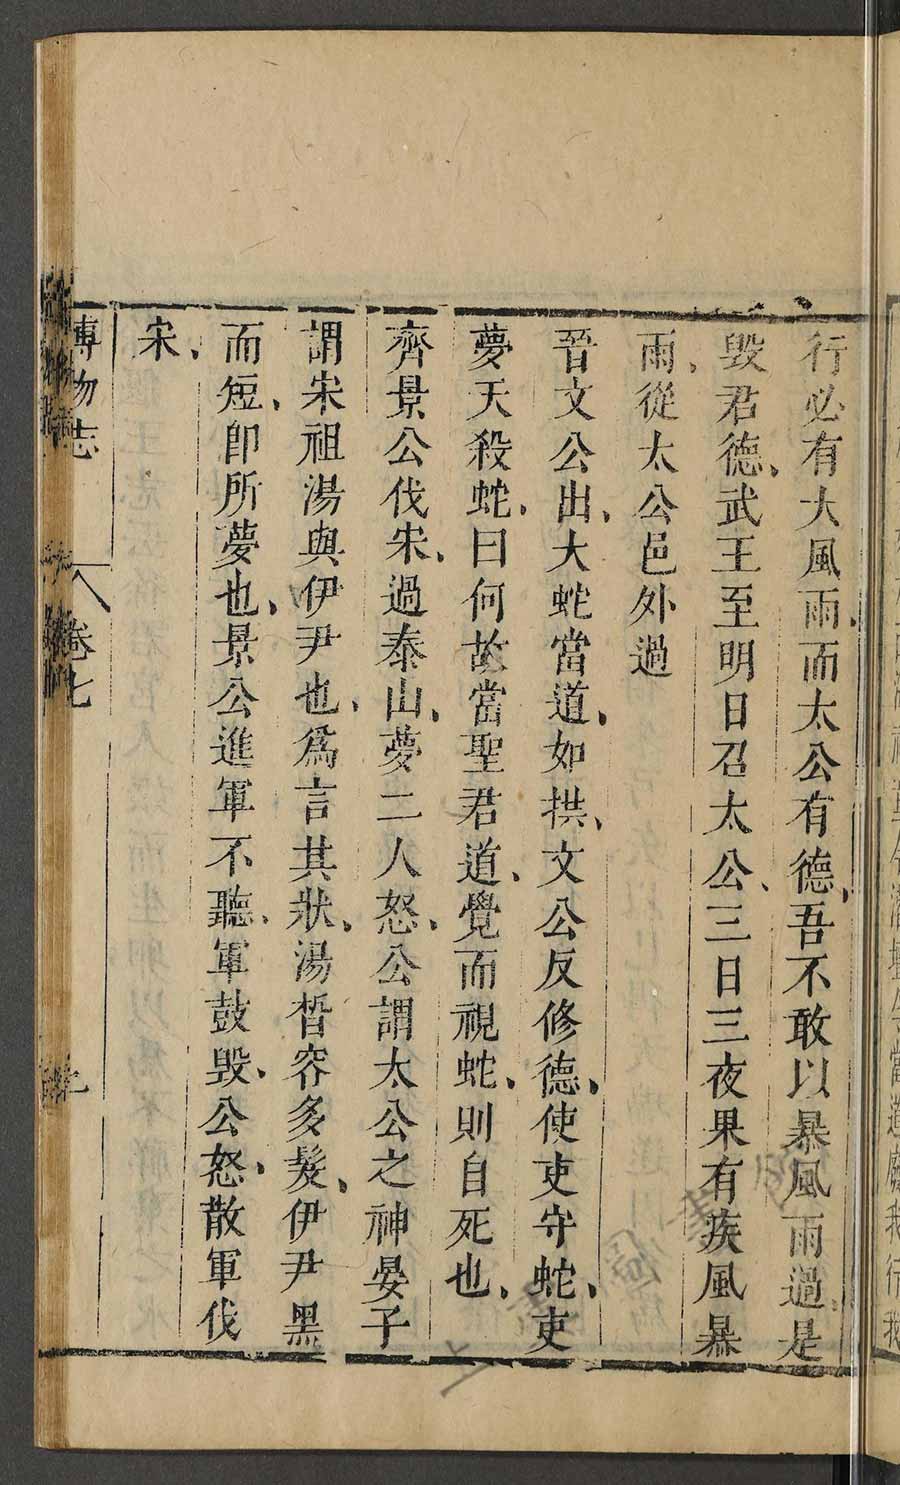 行必有大風雨、而太公有德、吾不敢以暴風雨過、是
毀君德、武王至明日召太公、三日三夜果有疾風暴
雨、從太公邑外過
晉文公出、大蛇當道、如拱、文公反修德、使吏守蛇、吏
夢天殺蛇、曰何故當聖君道、覺而視蛇、則自死也、
齊景公伐宋、過泰山、夢二人怒、公謂太公之神晏子
謂宋祖湯與伊尹也、爲言其狀、湯晳容多髮、伊尹黑
而短、即所夢也、景公進軍不聽、軍鼓毀、公怒、散軍伐
宋、
博物志 卷七